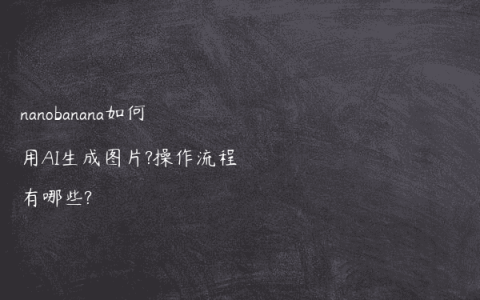 nanobanana如何
用AI生成图片?操作流程
有哪些?